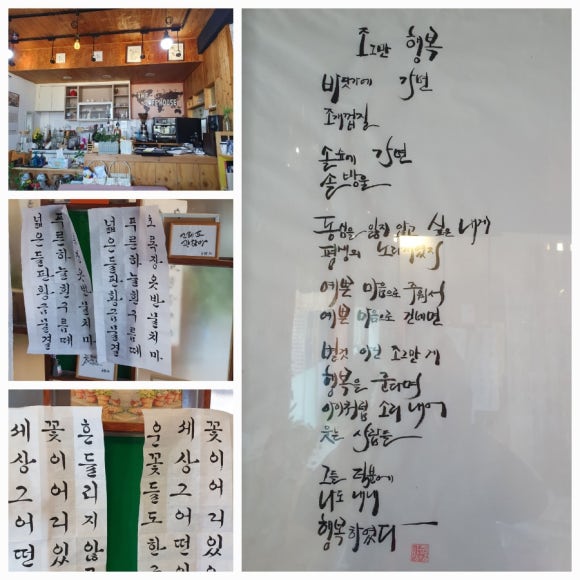 THE
초록장옷반물치마
푸른하늘흰구름떼
넓은들판황금물결
옷반물치마
푸른하늘흰구름떼
넓은들판황금물결
꽃이어디있
세상그어떤
은꽃들도한
흔들리지않고
꽃이어디있
세상그어떤
조그만 행복
바닷가에 가면
조개껍질
솔숲에 가면
솔방울
동심을 잃지 않고 싶은 내게
평생의 노리개였지
예쁜 마음으로 주워서
예쁜 마음으로 건네면
별것 아닌 조그만 게
행복을 준다며
아이처럼 소리 내어
웃는 사람들
그들 덕분에
나도 내내
행복하였다